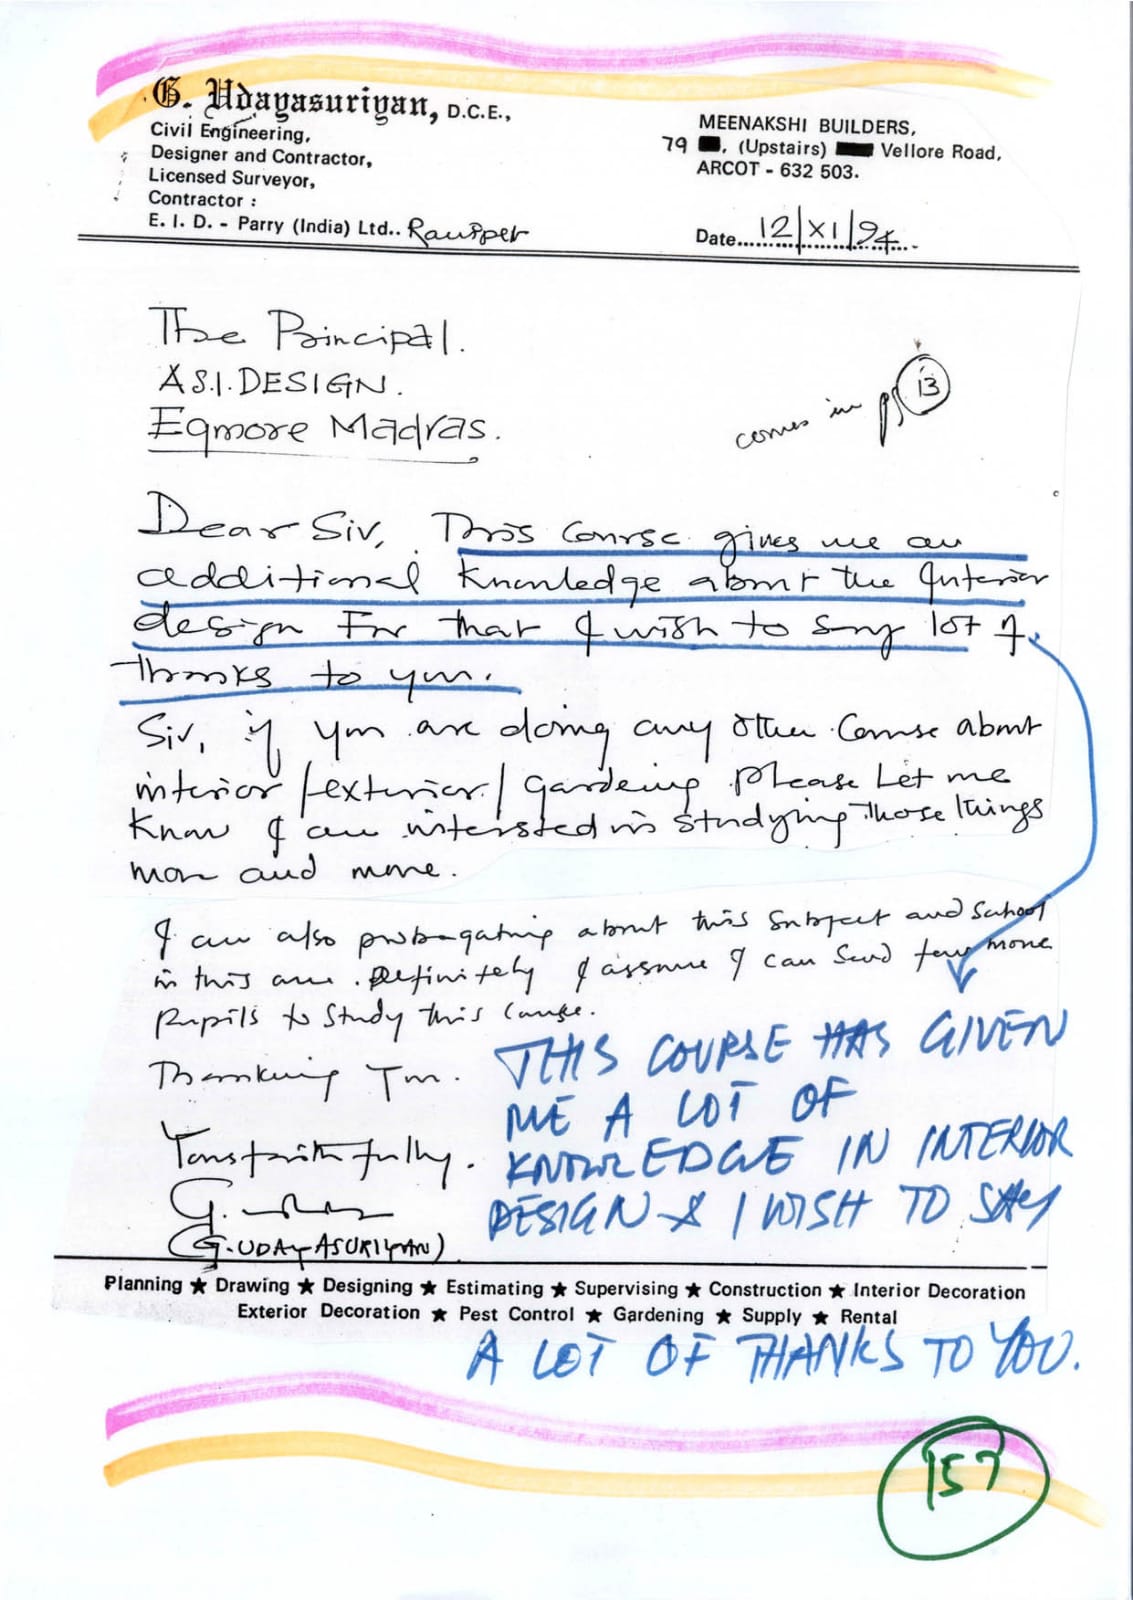 G. Udayasuriyan, D.C.E.,
Civil Engineering,
Designer and Contractor,
Licensed Surveyor,
Contractor :
E. I. D. - Parry (India) Ltd.. Ranipet
MEENAKSHI BUILDERS,
79 , (Upstairs) Vellore Road,
ARCOT - 632 503.
Date... 12/XI/94
The Principal.
A.S.I. DESIGN.
Egmore Madras.
comes in pg 13
Dear Sir, This course gives me an
additional knowledge about the Interior
design For that I wish to say lot of
thanks to you.
Sir, if you are doing any other Course about
interior /exterior/ gardening please Let me
Know I am intersted in studying Those things
more and more.
I am also probagating about this Subject and School
in this area. Definitely I assume I can Send few more
pupils to Study this Course.
Thanking You.
Yours faithfully.
G.
(G. UDAYASURIYAN)
THIS COURSE HAS GIVEN
ME A LOT OF
KNOWLEDGE IN INTERIOR
DESIGN & I WISH TO SAY
Planning ★ Drawing ★ Designing ★ Estimating ★ Supervising ★ Construction ★ Interior Decoration
Exterior Decoration ★ Pest Control ★ Gardening ★ Supply ★ Rental
A LOT OF THANKS TO YOU.
157